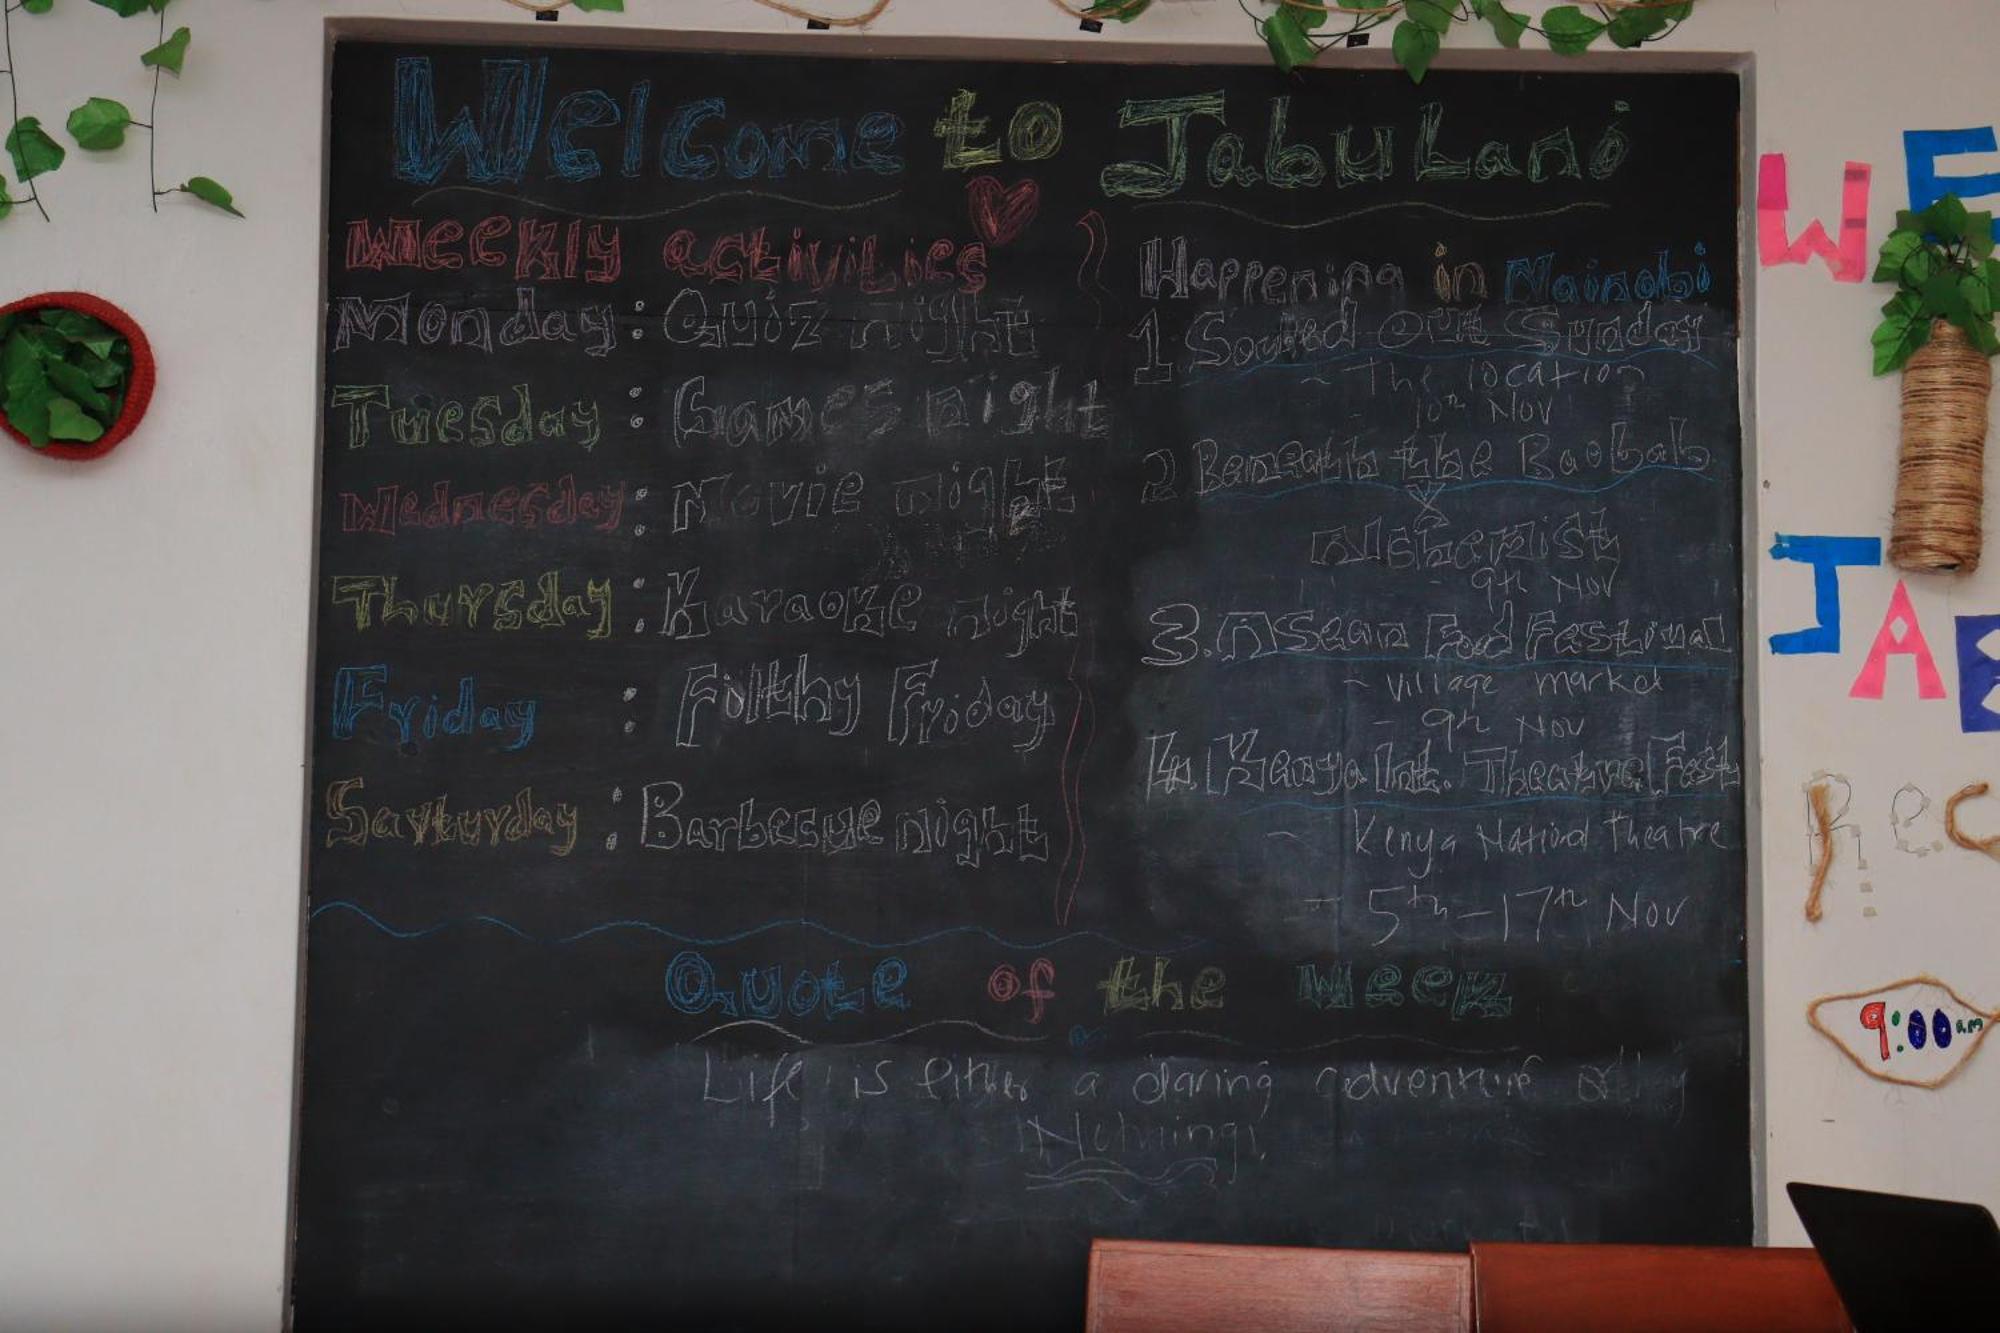 Welcome to Jabulani
Weekly activities
Monday : Quiz night
Tuesday : Games night
Wednesday : Movie night
Thursday : Karaoke night
Friday : Filthy Friday
Saturday : Barbecue night
Happening in Nairobi
1. Souled Out Sunday
- The location
10th Nov
2 Beneath the Baobab
X
Alchemist
- 9th Nov
3. Asean Food Festival
- Village market
- 9th Nov
4. Kenya Int. Theatre Fest
- Kenya National Theatre
- 5th - 17th Nov
Quote of the week
Life is either a daring adventure or
Nothing!
WE
JAB
Rec
9:00 am